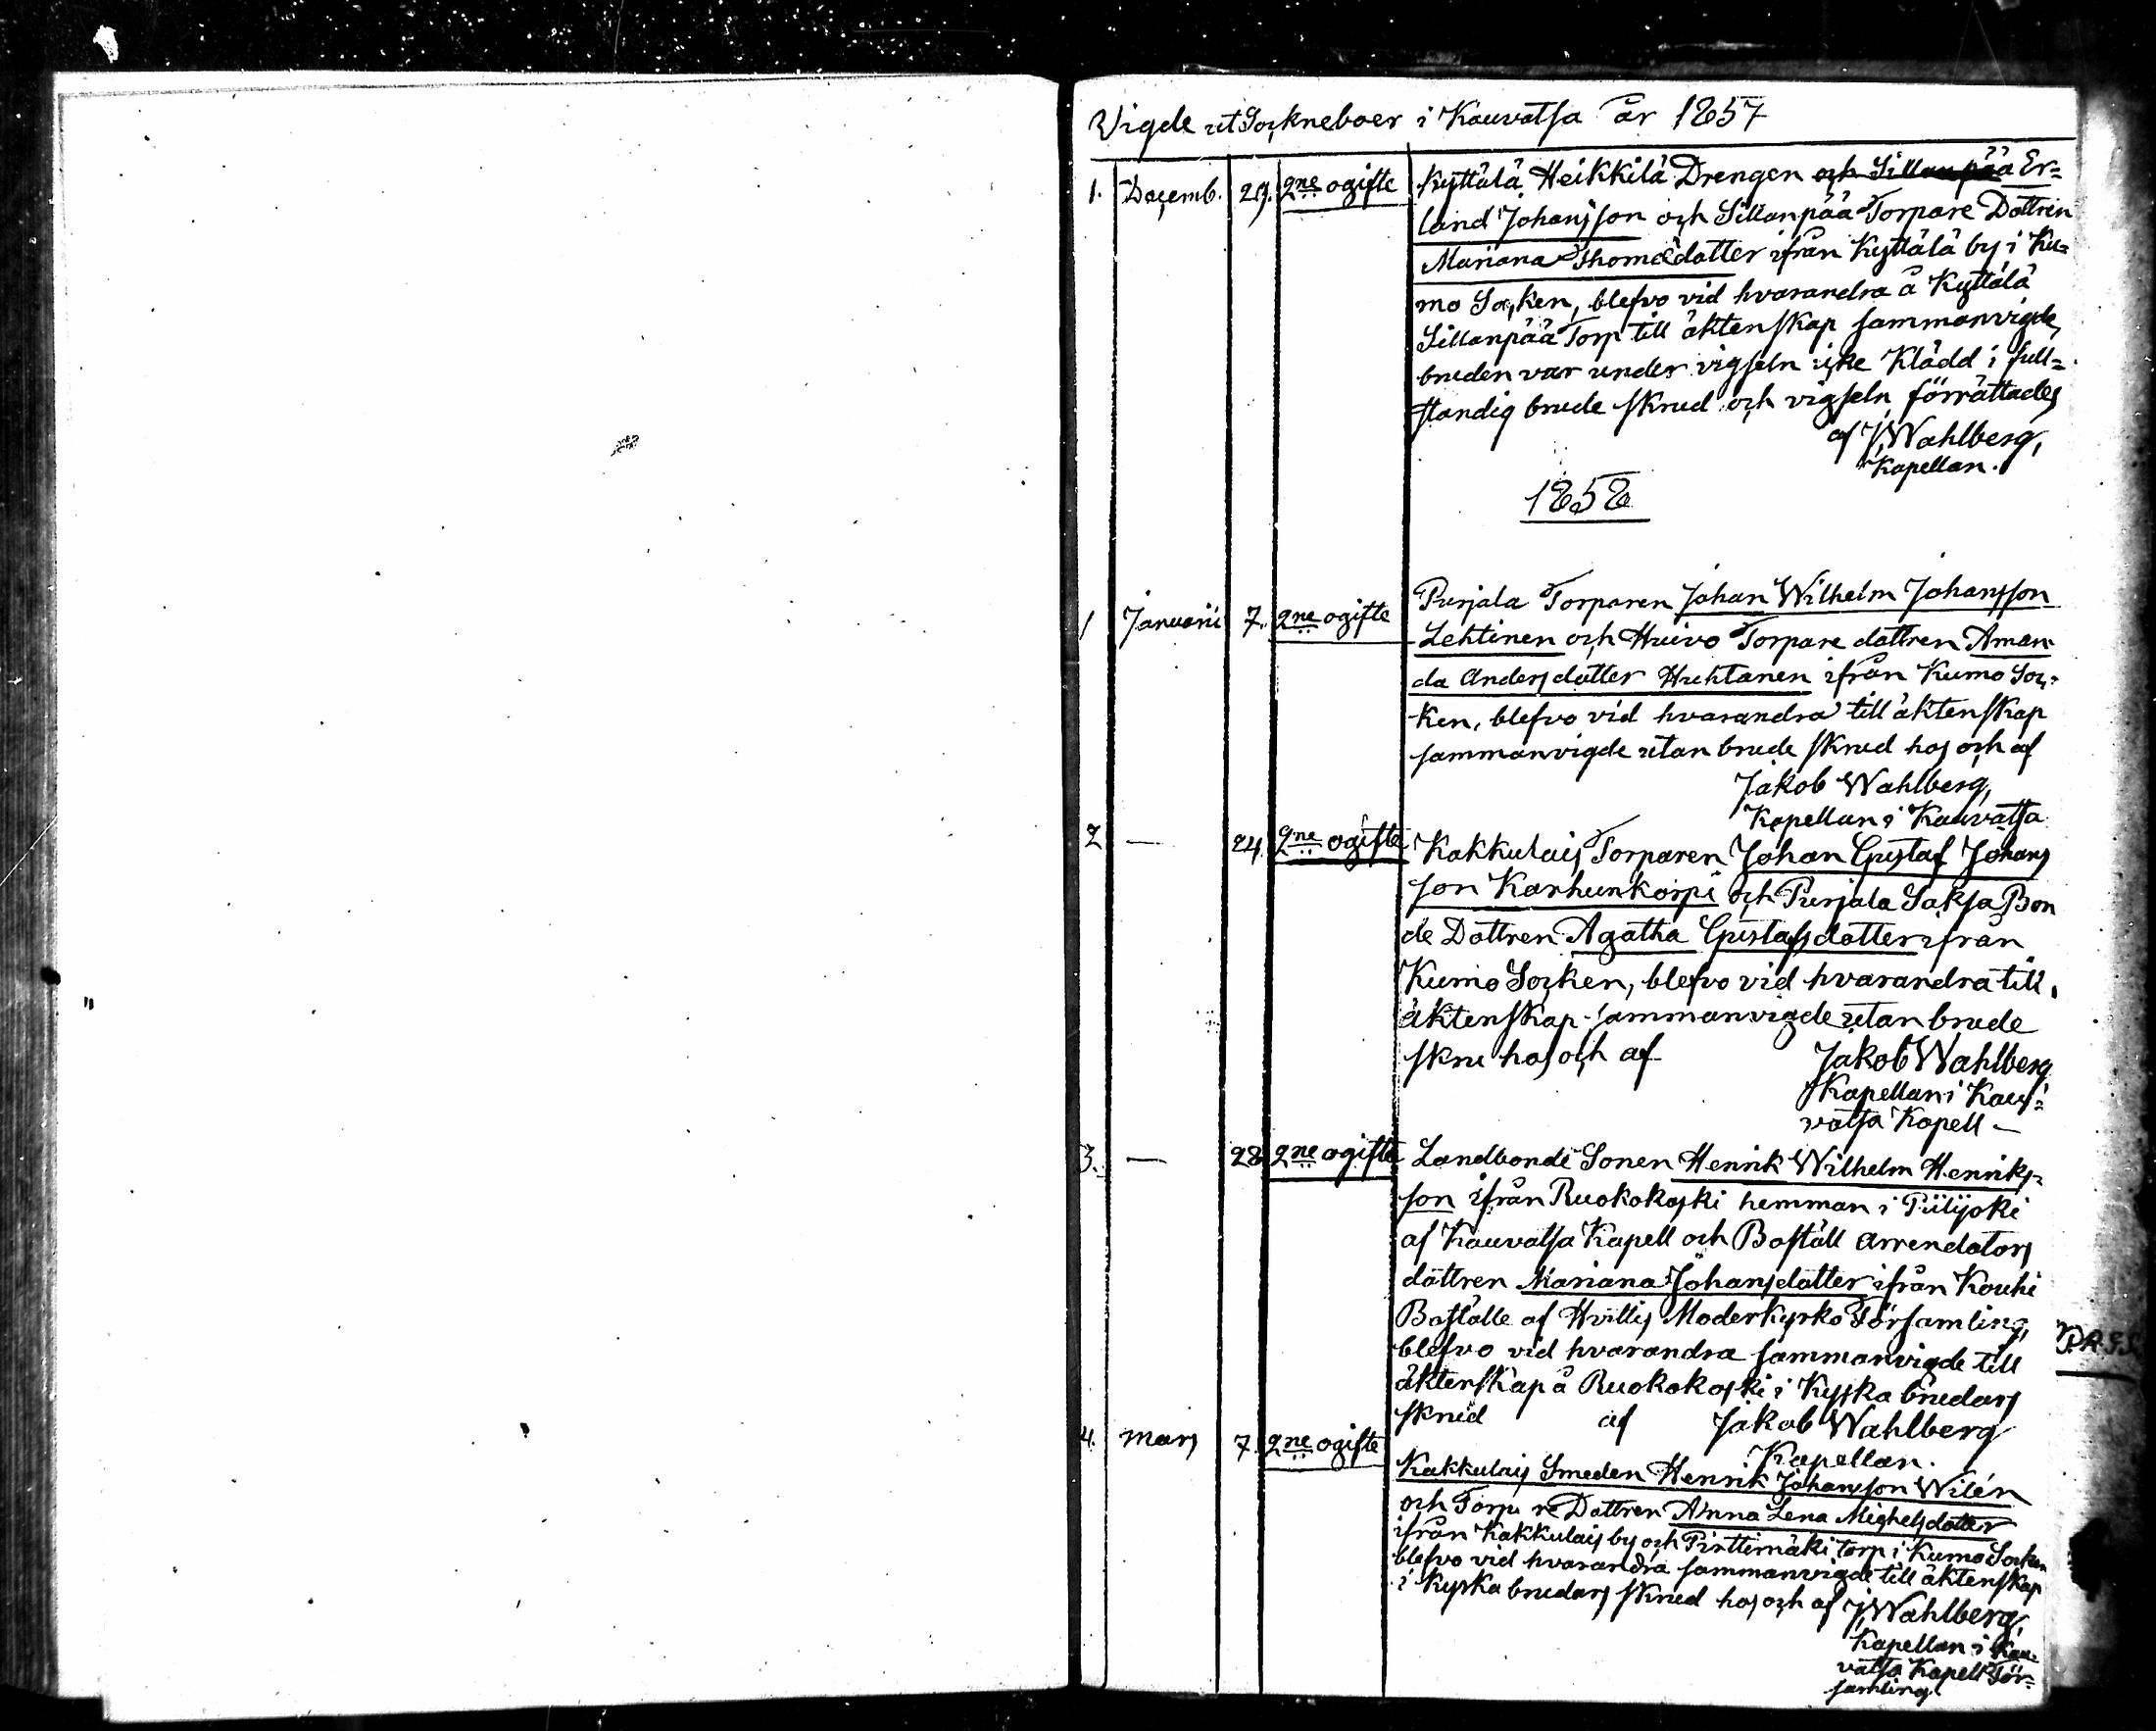 Vigde utSockneboer i Kauvatsa år 1857
1. Decemb. 29. 2ne ogifte Kyttälä Heikkilä Drengen och Sillanpää Er=
land Johansson och Sillanpää Torpare Dottren
Mariana Thomædotter ifrån Kyttälä by i Ku=
mo Socken, blefvo vid hvarandra å Kyttälä
Sillanpää Torp till äktenskap sammanvigde,
bruden var under vigseln icke Klädd i full=
standig brude skrud och vigseln förrättades
af J Wahlberg,
Kapellan.
1858
1 Januarii 7. 2ne ogifte Purjala Torparen Johan Wilhelm Johansson
Lehtinen och Huivo Torpare dottren Aman
da Andersdotter Huhtanen ifrån Kumo Soc=
ken, blefvo vid hvarandra till äktenskap
sammanvigde utan brude skrud hos och af
Jakob Wahlberg,
Kapellan i Kauvatsa
2 — 24. 2ne ogifte Kakkulais Torparen Johan Gustaf Johans
son Karhunkorpi och Purjala Saksa Bon
de Dottren Agatha Gustafsdotter ifrån
Kumo Socken, blefvo vid hvarandra till
äktenskap sammanvigde utan brude
skru hos och af Jakob Wahlberg
Kapellan i Kau=
vatsa Kapell —
3. — 28 2ne ogifte Landbonde Sonen Henrik Wilhelm Henriks=
son ifrån Ruokokoski hemman i Piilijoki
af Kauvatsa Kapell och Boställ arrendators
dottren Mariana Johansdotter ifrån Kouhi
Boställe af Hvittis Moderkyrko Församling,
blefvo vid hvarandra sammanvigde till
äktenskap å Ruokokoski i Kyska brudars
skrud af Jakob Wahlberg
Kapellan.
4. Mars 7. 2ne ogifte Kakkulais Smeden Henrik Johansson Wilén
och Torp re Dottren Anna Lena Michelsdotter
ifrån Kakkulais by och Pirttimäki torp i Kumo Socken
blefvo vid hvarandra sammanvigde till äktenskap
i Kyska brudars skrud hos och af J Wahlberg,
Kapellan i Kau=
vatsa Kapell För=
samling.